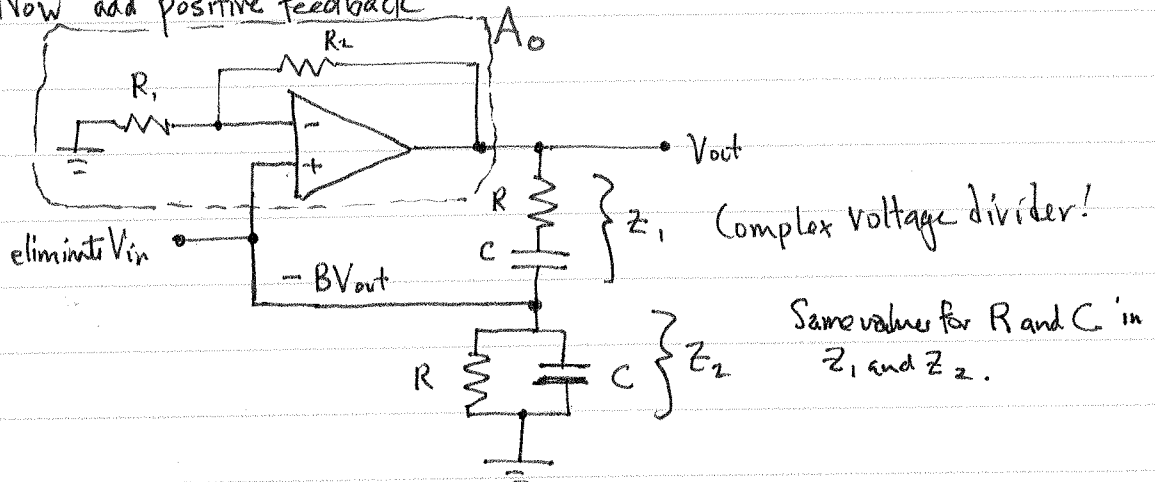 Now add positive feedback
A₀
R₂
R₁
-
+
Vout
R
C
} Z₁ Complex voltage divider!
eliminate Vin
- BVout
R
C
} Z₂
Same values for R and C in
Z₁ and Z₂.